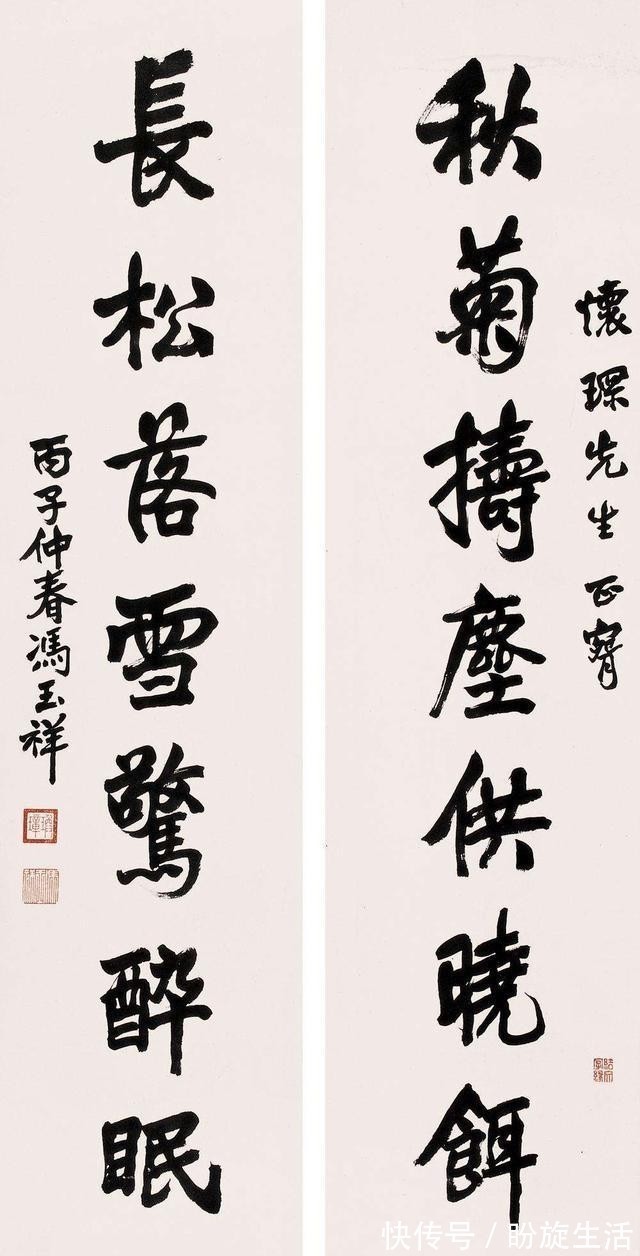 懷琛先生 正
秋菊擣塵供曉餌
長松落雪驚醉眠
丙子仲春馮玉祥
快传号 / 盼旋生活